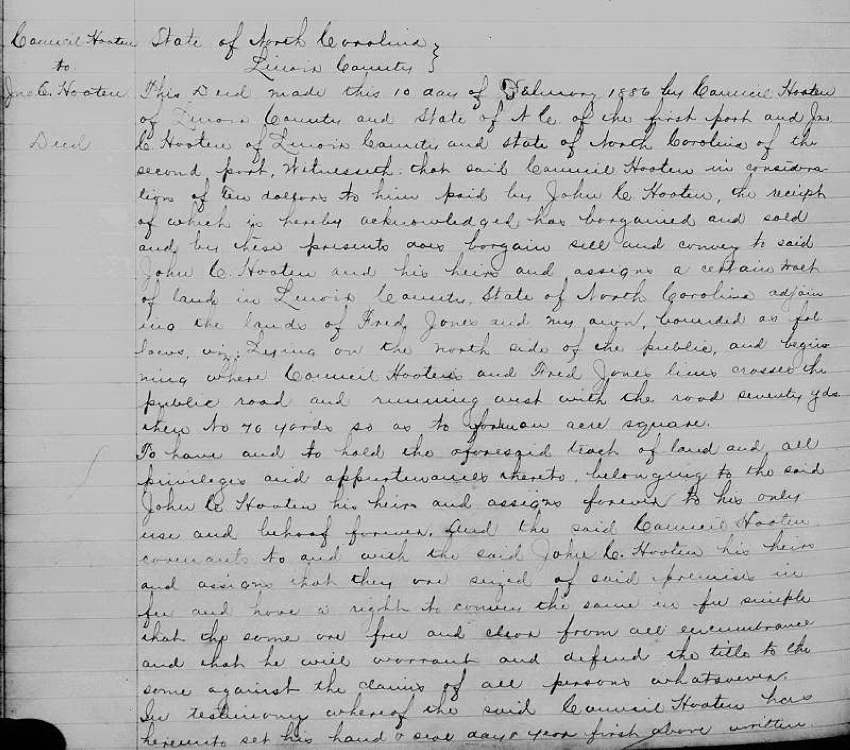 Council Hooten State of North Carolina }
to Lenoir County }
Jno C. Hooten This Deed made this 10 day of February 1886 by Council Hooten
of Lenoir County and State of N C. of the first part and Jno
Deed C Hooten of Lenoir County and State of North Carolina of the
second part, Witnesseth. that said Council Hooten in considera
tion of ten dollars to him paid by John C Hooten, the receipt
of which is hereby acknowledged, has bargained and sold
and by these presents does bargain sell and convey to said
John C. Hooten and his heirs and assigns a certain tract
of land in Lenoir County, State of North Carolina adjoin
ing the lands of Fred. Jones and my own, bounded as fol
lows, viz; Lying on the north side of the public, and begin
ning where Council Hooten's and Fred Jones lines crosses the
public road and running west with the road seventy yds.
then No 70 yards so as to form an acre square.
To have and to hold the aforesaid track of land and all
privileges and appurtenances thereto, belonging to the said
John C Hooten his heirs and assigns forever to his only
use and behoof forever. And the said Council Hooten
covenants to and with the said John C. Hooten his heirs
and assigns that they are seized of said premises in
fee and have a right to convey the same in fee simple
that the same are free and clear from all encumbrance
and that he will warrant and defend the title to the
same against the claims of all persons whatsoever.
In testimony whereof the said Council Hooten has
hereunto set his hand & seal day & year first above written.